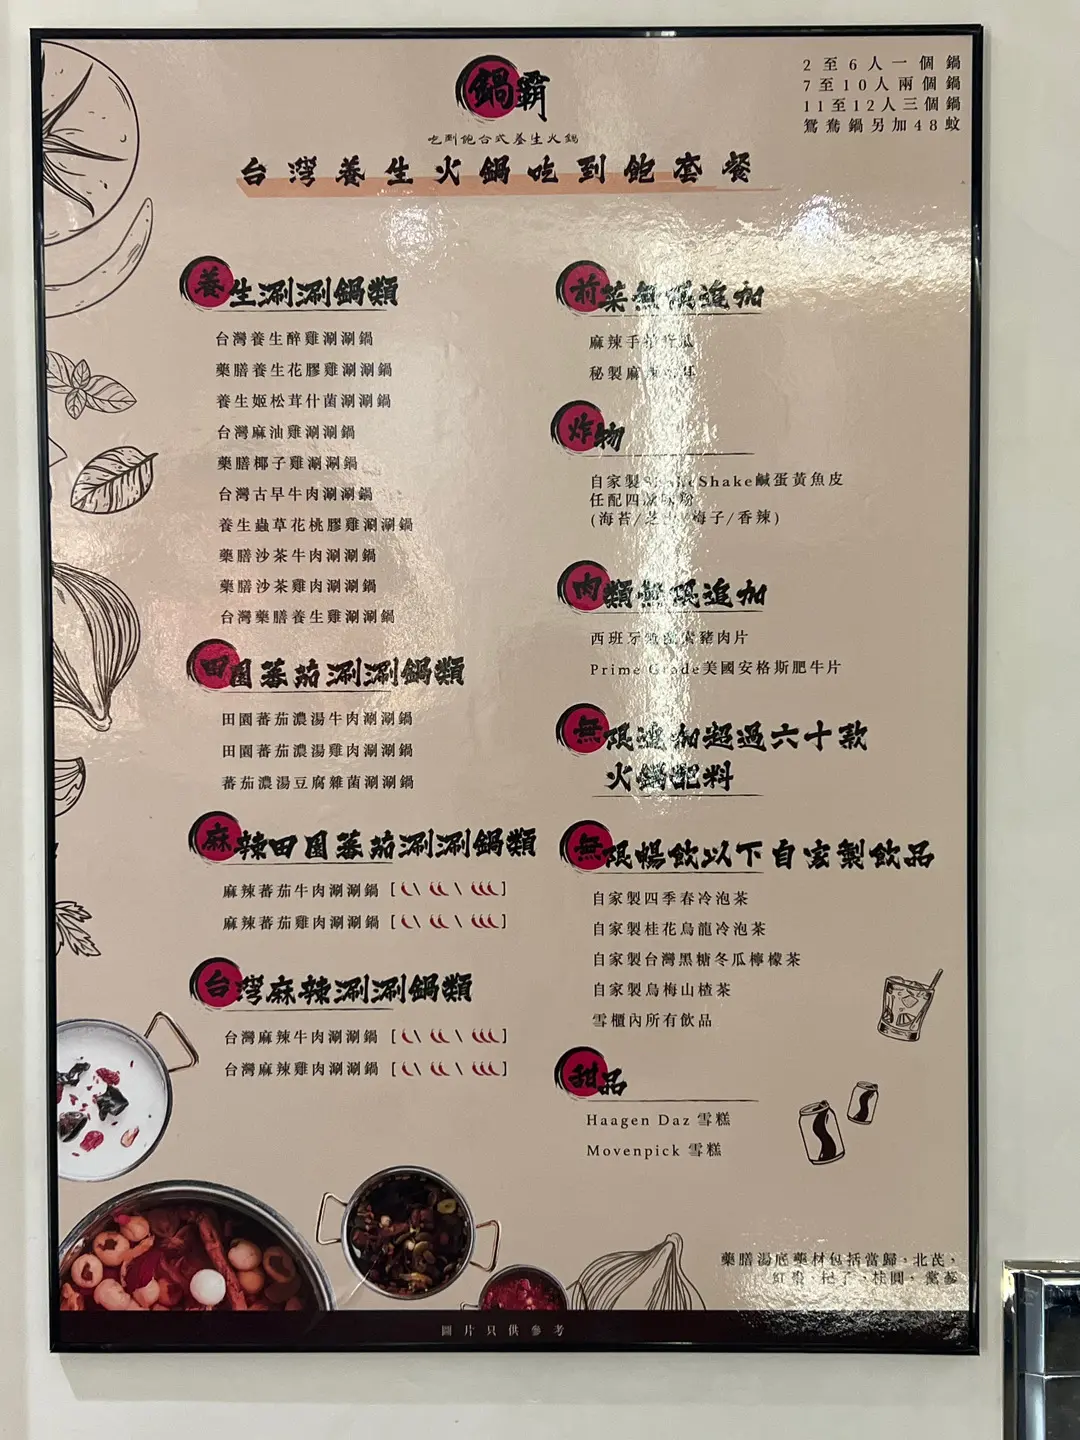 鍋霸
吃到飽台式養生火鍋
台灣養生火鍋吃到飽套餐
2至6人一個鍋
7至10人兩個鍋
11至12人三個鍋
鴛鴦鍋另加48蚊
養生涮涮鍋類
台灣養生醉雞涮涮鍋
藥膳養生花膠雞涮涮鍋
養生姬松茸什菌涮涮鍋
台灣麻油雞涮涮鍋
藥膳椰子雞涮涮鍋
台灣古早牛肉涮涮鍋
養生蟲草花桃膠雞涮涮鍋
藥膳沙茶牛肉涮涮鍋
藥膳沙茶雞肉涮涮鍋
台灣藥膳養生雞涮涮鍋
田園蕃茄涮涮鍋類
田園蕃茄濃湯牛肉涮涮鍋
田園蕃茄濃湯雞肉涮涮鍋
蕃茄濃湯豆腐雜菌涮涮鍋
麻辣田園蕃茄涮涮鍋類
麻辣蕃茄牛肉涮涮鍋 [ \ \ ]
麻辣蕃茄雞肉涮涮鍋 [ \ \ ]
台灣麻辣涮涮鍋類
台灣麻辣牛肉涮涮鍋 [ \ \ ]
台灣麻辣雞肉涮涮鍋 [ \ \ ]
前菜無限追加
麻辣手
秘製麻
炸物
自家製ShakeShake鹹蛋黃魚皮
任配四
(海苔/芝士/梅子/香辣)
肉類無限追加
西班牙 豬肉片
Prime Grade美國安格斯肥牛片
無限追加超過六十款
火鍋配料
無限暢飲以下自家製飲品
自家製四季春冷泡茶
自家製桂花烏龍冷泡茶
自家製台灣黑糖冬瓜檸檬茶
自家製烏梅山楂茶
雪櫃內所有飲品
甜品
Haagen Daz 雪糕
Movenpick 雪糕
藥膳湯底藥材包括當歸，北芪，
紅棗，杞子，桂圓，黨蔘
圖片只供參考